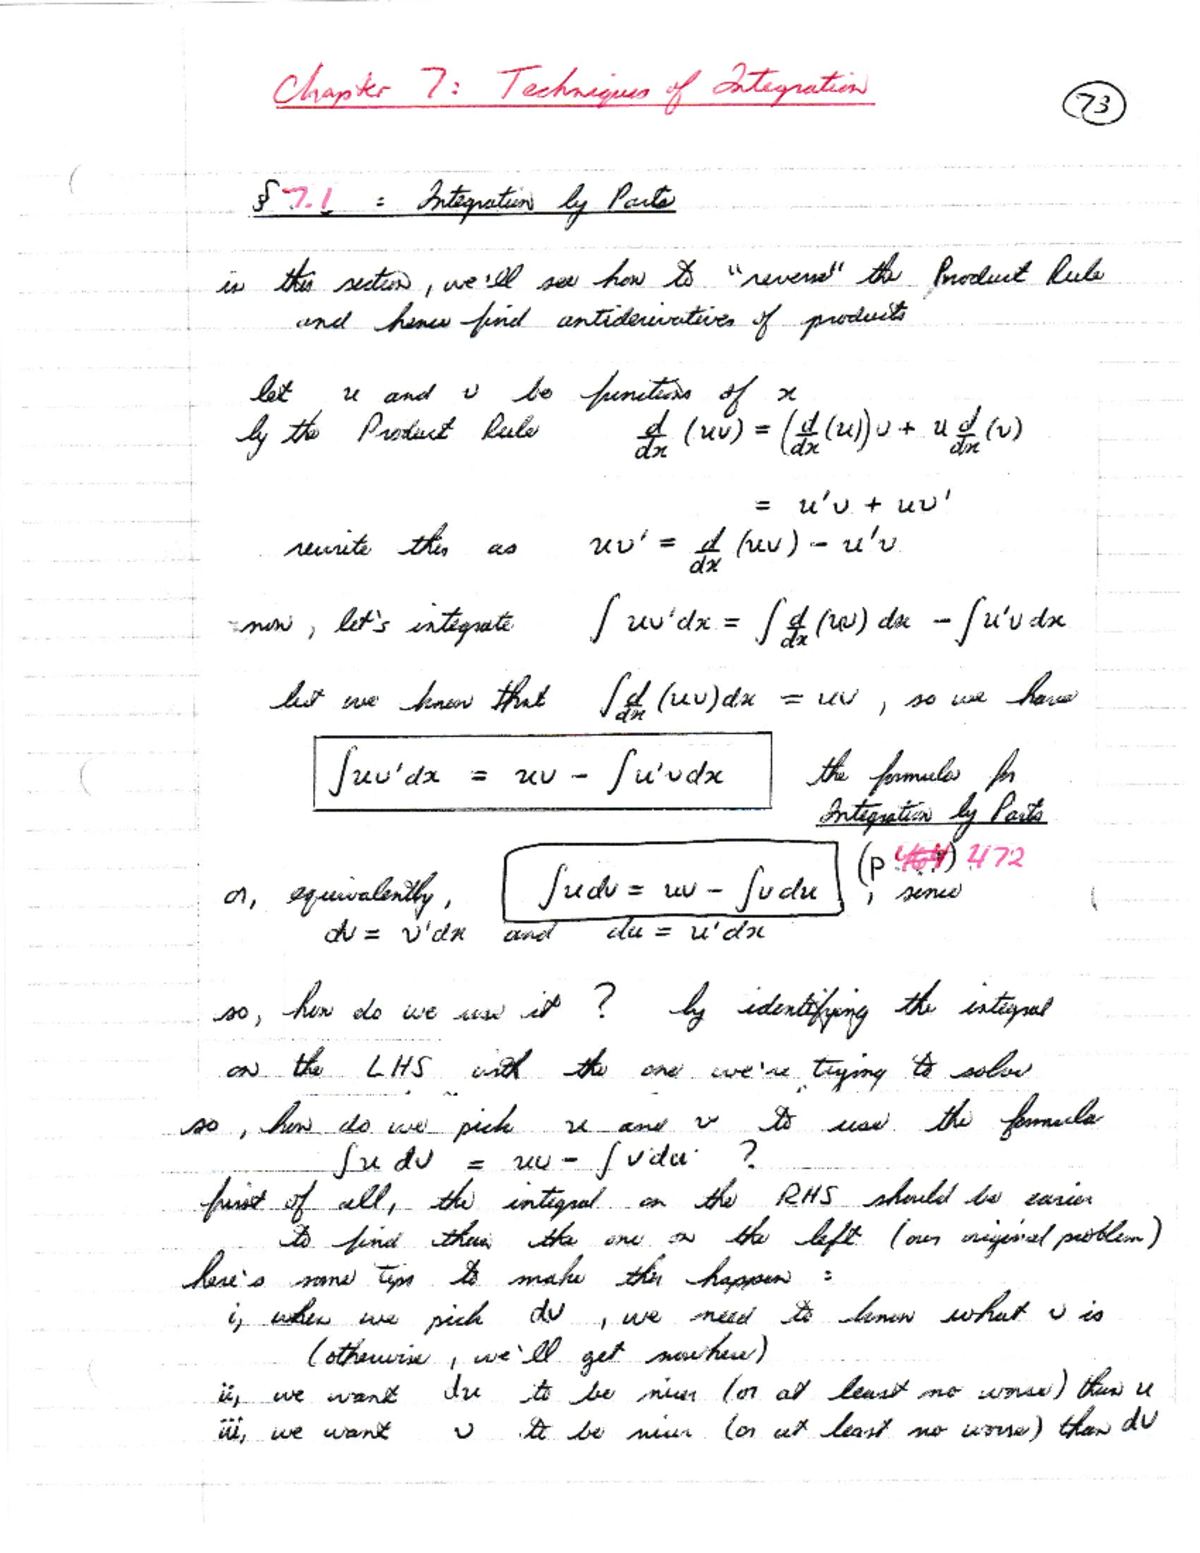 Chapter 7: Techniques of Integration
73
§ 7.1 : Integration by Parts
in this section, we'll see how to "reverse" the Product Rule
and hence find antiderivatives of products
let u and v be functions of x
by the Product Rule d/dx (uv) = (d/dx (u)) v + u d/dx (v)
= u'v + uv'
rewrite this as uv' = d/dx (uv) - u'v
now, let's integrate ∫ uv'dx = ∫ d/dx (uv) dx - ∫u'v dx
but we know that ∫ d/dx (uv)dx = uv, so we have
∫uv'dx = uv - ∫u'vdx the formula for
Integration by Parts
(p 464) 472
or, equivalently, ∫udv = uv - ∫vdu, since
dv = v'dx and du = u'dx
so, how do we use it? by identifying the integral
on the LHS with the one we're trying to solve
so, how do we pick u and v to use the formula
∫u dv = uv - ∫vdu ?
first of all, the integral on the RHS should be easier
to find than the one on the left (our original problem)
here's some tips to make this happen :
i, when we pick dv, we need to know what v is
(otherwise, we'll get nowhere)
ii, we want du to be nicer (or at least no worse) than u
iii, we want v to be nicer (or at least no worse) than dv